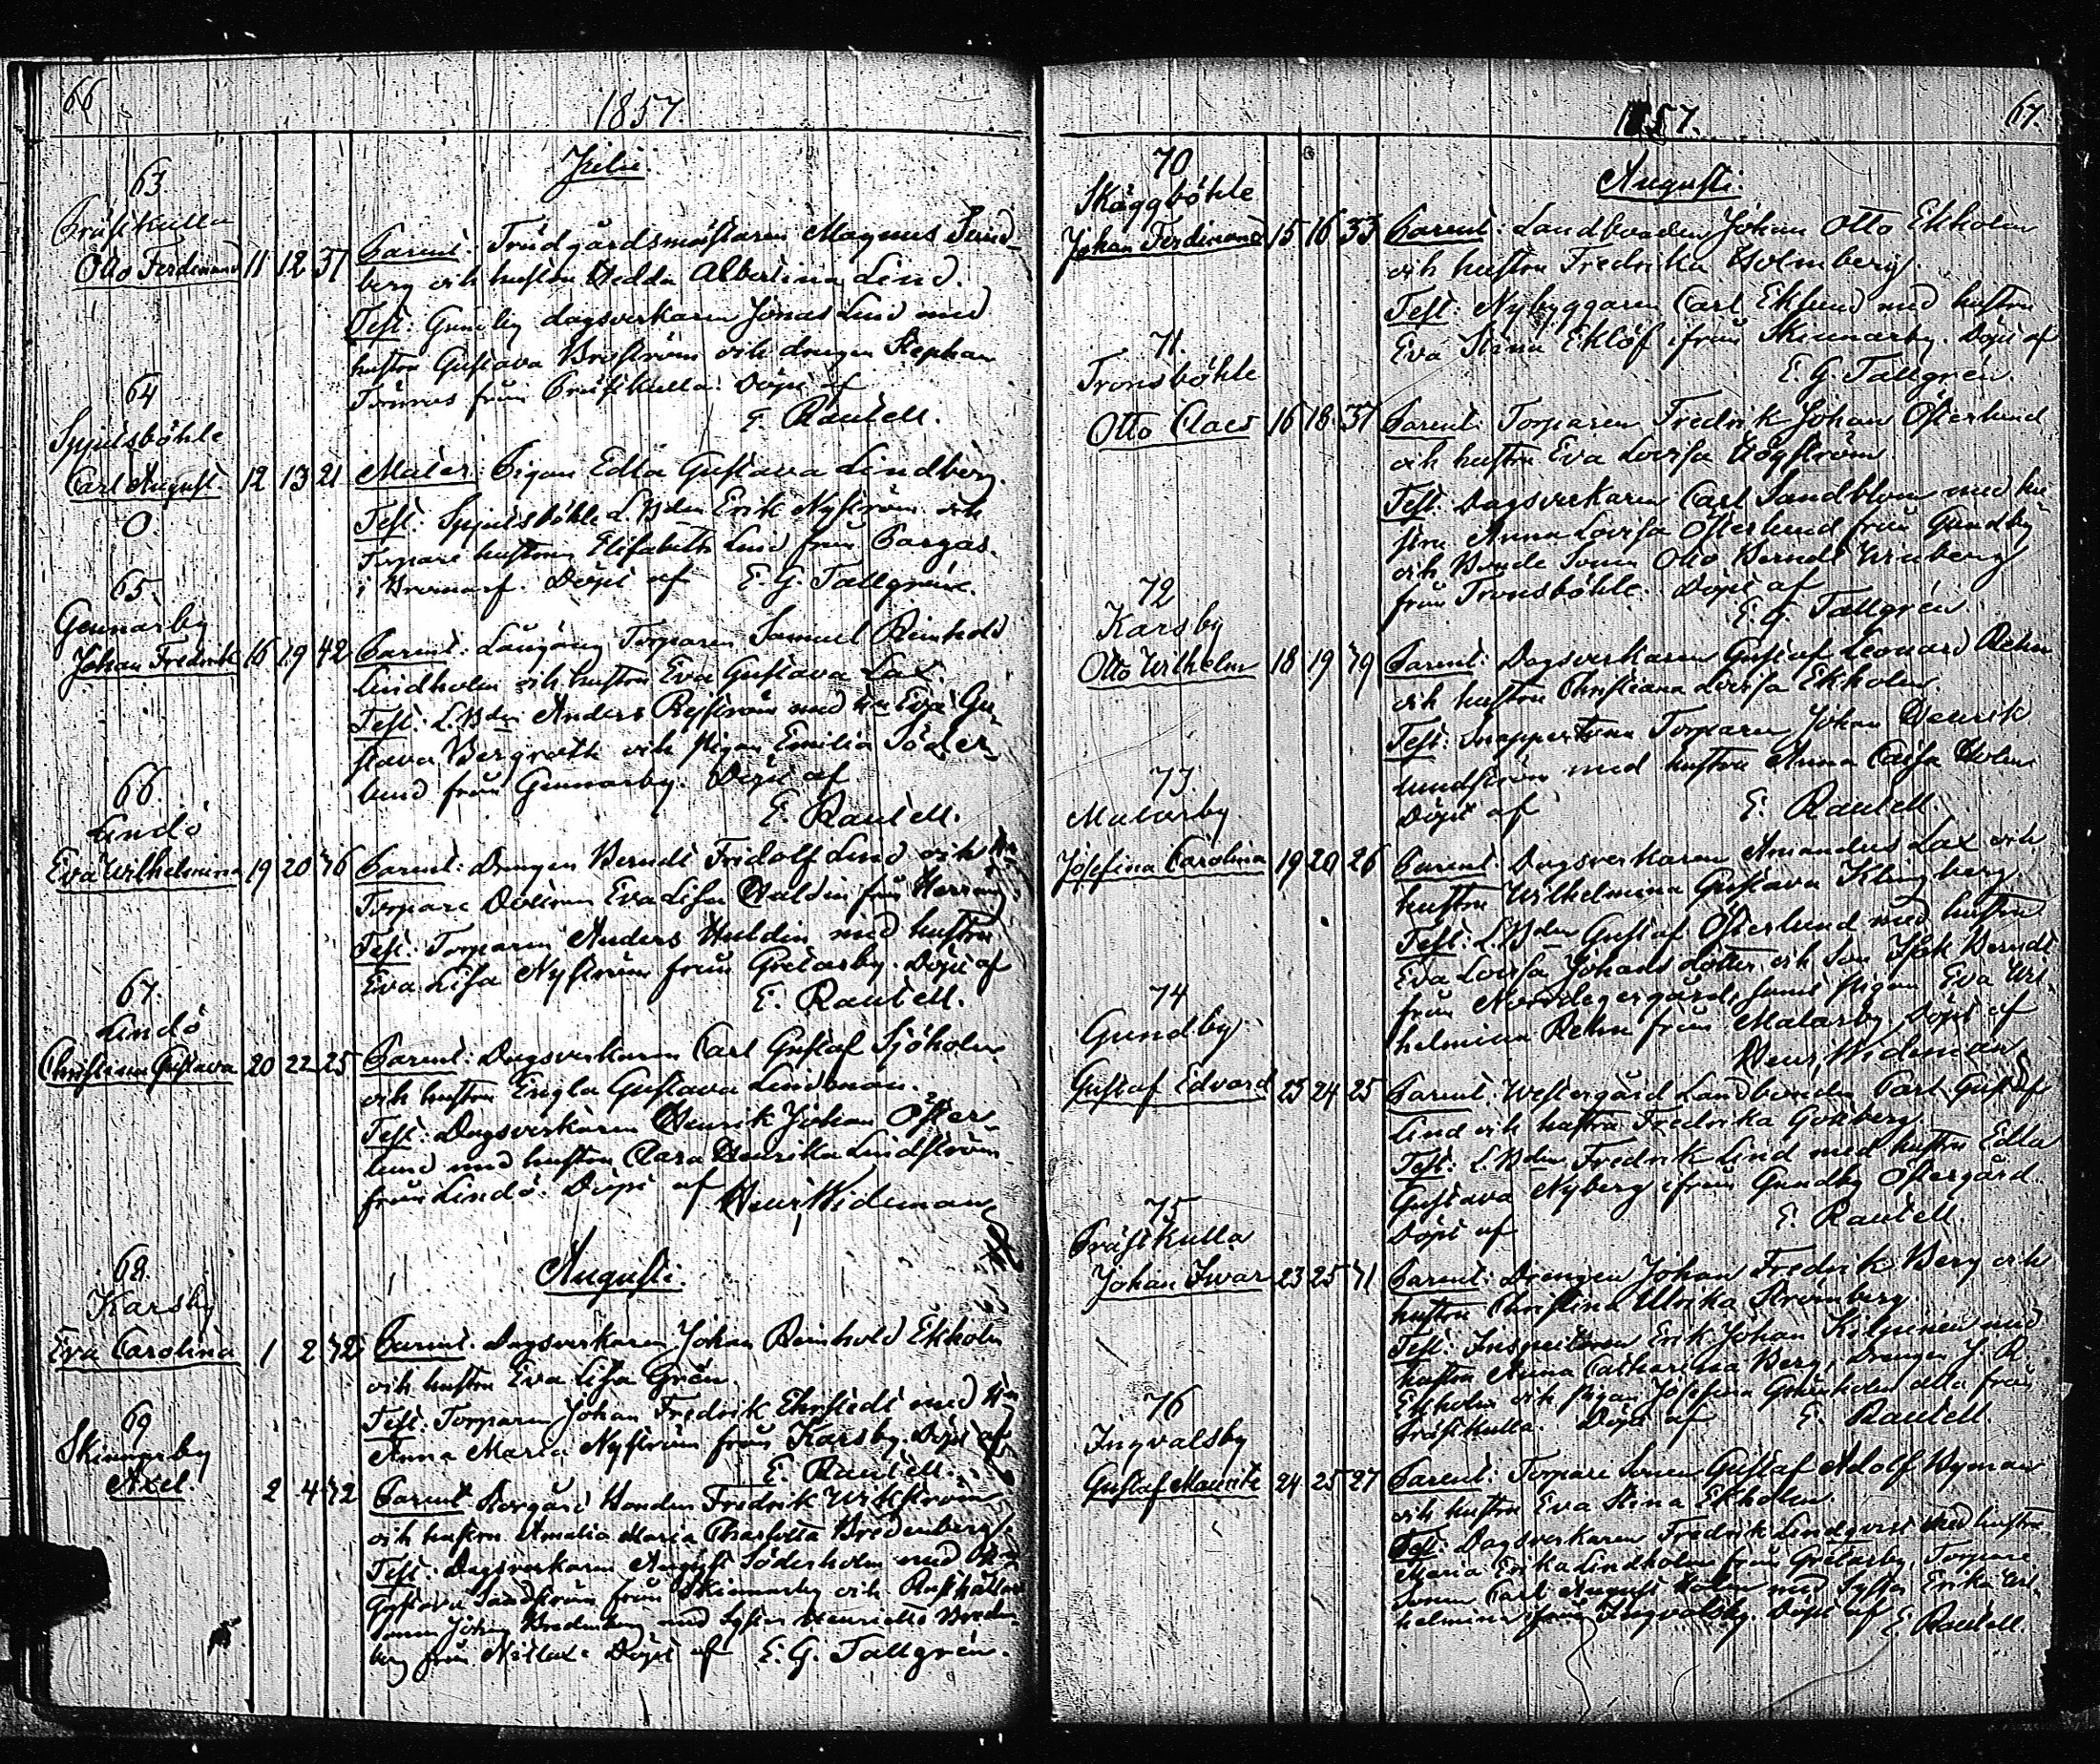 66
1857.
Julii.
63
Präfikulla
Otto Ferdinand 11 12 37
Parent: Trädgårdsmästaren Magnus Sund-
berg och hustru Hedda Albertina Lind.
Test: Gundby dagsverkaren Jonas Lind med
hustru Gustava Broström och drengen Stephan
Törnroos från Prästkulla. Döpt af
E. Rautell.
64
Spjutsböhle
Carl August 12 13 21
O.
Mater: Pigan Edla Gustava Lindberg.
Test: Spjutsböhle L. Bden Erik Nyström och
Torpare hustrun Elisabeth Lind från Pargas
i Bromarf. Döpt af E. G. Tallgrén.
65.
Gennarby
Johan Fredrik 16 19 42
Parent: Långäng Torparen Samuel Reinhold
Lindholm och hustru Eva Gustava Lax.
Test: L. Bden Anders Rejström med hu Eva Gu-
stava Bergroth och pigan Emilia Söder-
lund från Gennarby. Döpt af
E. Rautell.
66.
Lindö
Eva Wilhelmina 19 20 76
Parent: Drengen Berndt Fridolf Lind och hu
Torpare Dottren Eva Lisa Huldin från
Test: Torparen Anders Huldin med hustru
Eva Lisa Nyström från Gretarby. Döpt af
E. Rautell.
67.
Lindö
Christina Gustava 20 22 25
Parent: Dagsverkaren Carl Gustaf Sjöholm
och hustru Engla Gustava Lindman.
Test: Dagsverkaren Henrik Johan Öster-
lund med hustru Clara Henrika Lindström
från Lindö. Döpt af Henr. Wideman
Augusti.
68.
Karsby
Eva Carolina 1 2 72
Parent. Dagsverkaren Johan Reinhold Ekholm
och hustru Eva Lisa Grén.
Test. Torparen Johan Fredrik Ehrstedt med hu
Anna Maria Nyström från Karsby. Döpt af
E. Rautell.
69
Skinnarby
Axel. 2 4 72
Parent. Storgård Bonden Fredrik Wikström
och hustru Amalia Maria Charlotta Bredenberg.
Test: Dagsverkaren August Söderholm med hu
Gustava Sandström från Skinnarby och Rusthållare
Johan Bredenberg med Syster Henrietta Breden-
berg från Nitlax. Döpt af E. G. Tallgrén.
1857.
67.
Augusti.
70
Skäggböhle
Johan Ferdinand 15 16 33
Parent: Landbonden Johan Otto Ekholm
och hustru Fredrika Holmberg.
Test: Nybyggaren Carl Eklund med hustru
Eva Stina Eklöf ifrån Skinnarby. Döpt af
E. G. Tallgrén.
71.
Tronsböhle
Otto Claes 16 18 37
Parent: Torparen Fredrik Johan Österlund
och hustru Eva Lovisa Högström
Test: Dagsverkaren Carl Sandblom med hu-
stru Anna Lovisa Österlund från Gundby
och Bonde Sonen Otto Berndt Wenberg
från Tronsböhle. Döpt af
E. G. Tallgrén
72
Karsby
Otto Wilhelm 18 19 79
Parent: Dagsverkaren Gustaf Leonard Rehn
och hustru Christiana Lovisa Ekholm.
Test: Snappertuna Torparen Johan Henrik
Lundström med hustru Anna Caisa Holm
Döpt af E. Rautell.
73.
Malarby.
Josefina Carolina 19 20 26
Parent: Dagsverkaren Amandus Lax och
hustru Wilhelmina Gustava Klingberg.
Test: L. Bden Gustaf Österlund med hustru
Eva Lovisa Johans dotter och Son Isak Berndt
från Nordegergård, samt pigan Eva Wil-
helmina Rehn från Malarby, Döpt af
Henr. Wideman
74
Gundby.
Gustaf Edvard 23 24 25
Parent: Westergård Landbonden Carl Gustaf
Lind och hustru Fredrika Gottberg.
Test: L. Bden Fredrik Lind med hustru Edla
Gustava Nyberg ifrån Gundby Östergård.
Döpt af E. Rautell.
75
Prästkulla
Johan Iwar 23 25 71
Parent: Drengen Johan Fredrik Berg och
hustru Christina Ulrika Strömberg.
Test: Inspectoren Erik Johan Kilpinen med
hustru Anna Catharina Berg, Drengen J. R.
Ekholm och pigan Josefina Grönholm alla från
Prästkulla. Döpt af E. Rautell.
76
Ingvalsby
Gustaf Mauritz 24 25 27
Parent: Torpare Sonen Gustaf Adolf Wyman
och hustru Eva Stina Ekholm.
Test: Dagsverkaren Fredrik Lindqvist med hustru
Maria Erika Lindholm från Gretarby, Torpare
Sonen Carl August Holm med Syster Erika Wil-
helmina från Ingvalsby. Döpt af E. Rautell.